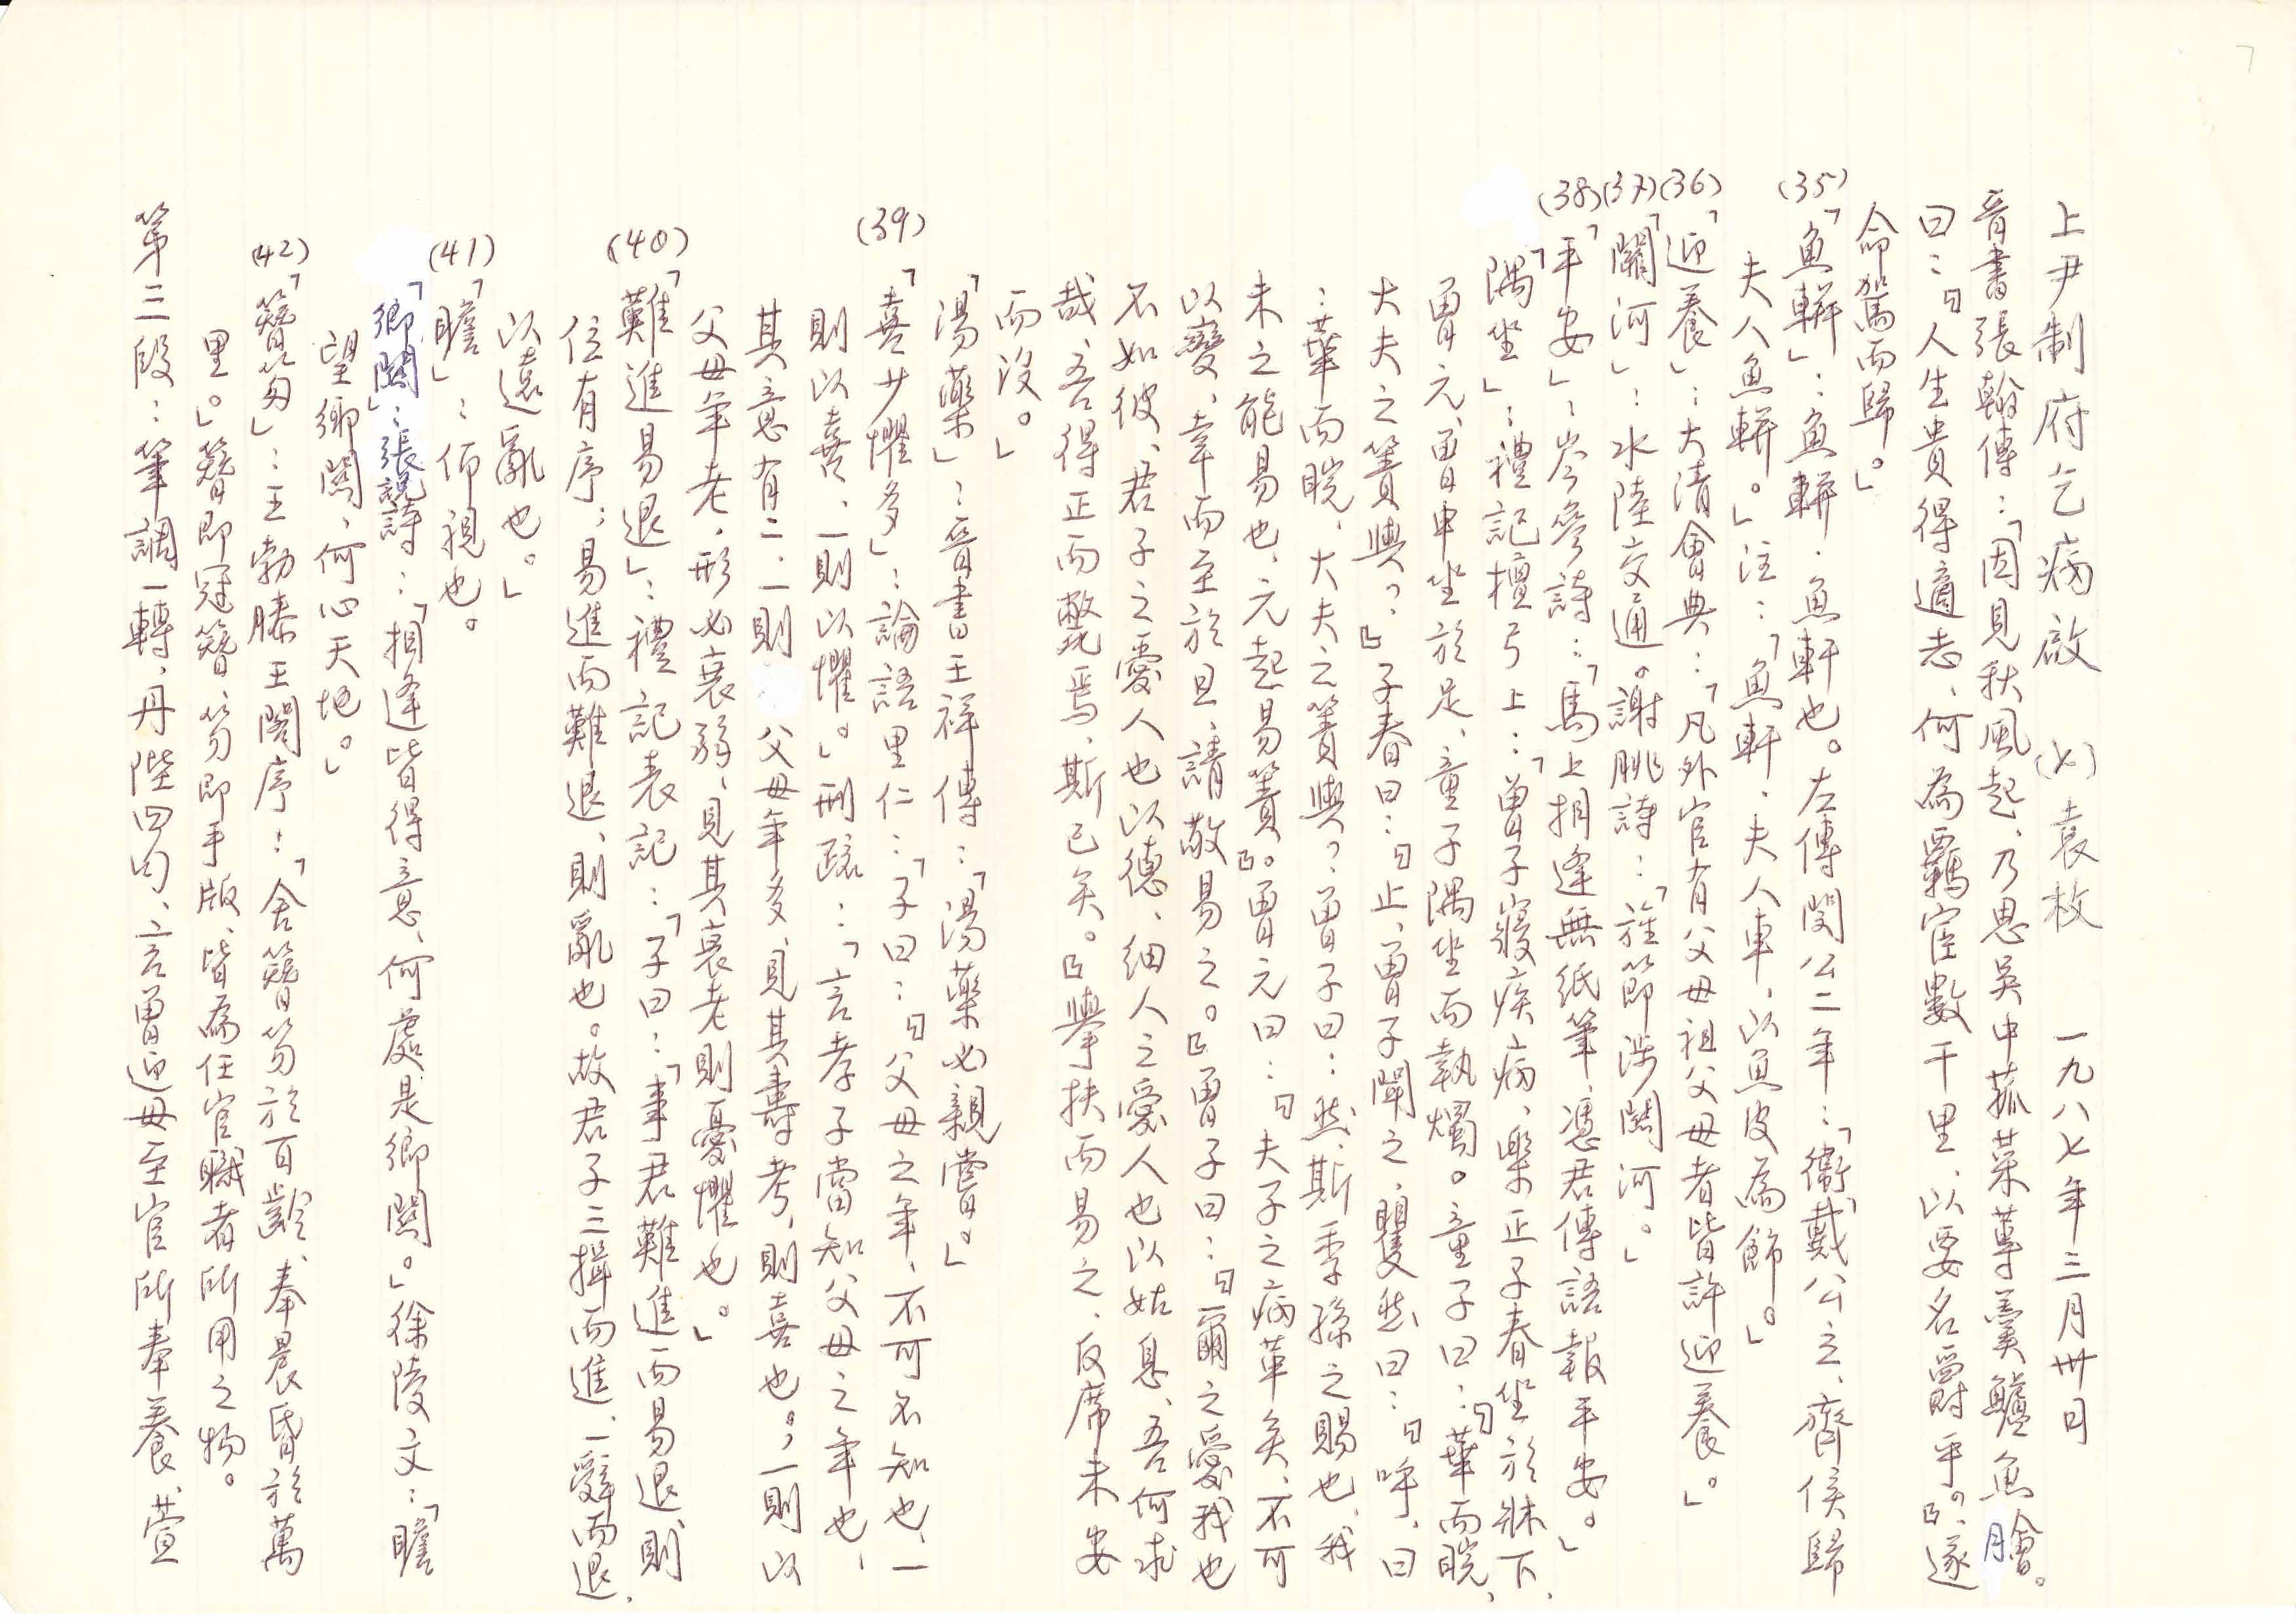 7
上尹制府乞病啟 (七) 袁枚 一九八七年三月卅日
晉書張翰傳：「因見秋風起，乃思吳中菰菜蓴羹鱸魚膾。
曰：『人生貴得適志，何為羈宦數千里，以要名爵乎。』遂
命駕而歸。」
(35)「魚軿」：魚軿．魚軒也。左傳閔公二年：「衞戴公立，齊侯歸
夫人魚軿。」注：「魚軒．夫人車，以魚皮為飾。」
(36)「迎養」：大清會典：「凡外官有父母祖父母者皆許迎養」。
(37)「關河」：水陸交通。謝朓詩：「旌節涉關河。」
(38)「平安」：岑參詩：「馬上相逢無紙筆，憑君傳語報平安。」
「隅坐」：禮記檀弓上：「曾子寢疾病，樂正子春坐於牀下，
曾元、曾申坐於足，童子隅坐而執燭。童子曰：『華而睆，
大夫之簀與？』子春曰：『止，曾子聞之，瞿然曰：『呼，曰
：華而睆，大夫之簀與？曾子曰：然，斯季孫之賜也，我
未之能易也，元起易簀』。曾元曰：『夫子之病革矣，不可
以變，幸而至於旦，請敬易之。』曾子曰：『爾之愛我也
不如彼，君子之愛人也以德，細人之愛人也以姑息，吾何求
哉，吾得正而斃焉，斯已矣。』舉扶而易之，反席未安
而沒。」
「湯藥」：晉書王祥傳：「湯藥必親嘗。」
(39)「喜少懼多」：論語里仁：「子曰：『父母之年，不可不知也，一
則以喜，一則以懼。」刑疏：「言孝子當知父母之年也，
其意有二，一則父母年多，見其壽考，則喜也。，一則以
父母年老，形必衰弱，見其衰老則憂懼也。」
(40)「難進易退」：禮記表記：「子曰：「事君難進而易退，則
位有序；易進而難退，則亂也。故君子三揖而進，一辭而退，
以遠亂也。」
(41)「瞻」：仰視也。
「鄉關」：張說詩：「相逢皆得意，何處是鄉關。」徐陵文：「瞻
望鄉關，何心天地。」
(42)「簪笏」：王勃滕王閣序：「舍簪笏於百齡，奉晨昏於萬
里。」簪即冠簪，笏即手版，皆為任官職者所用之物。
第三段：筆調一轉，丹陛四句，言曾迎母至官所奉養，萱